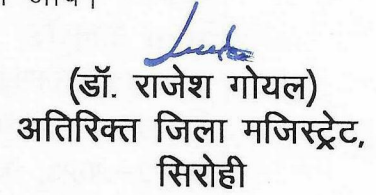 (डॉ. राजेश गोयल)
अतिरिक्त जिला मजिस्ट्रेट,
सिरोही